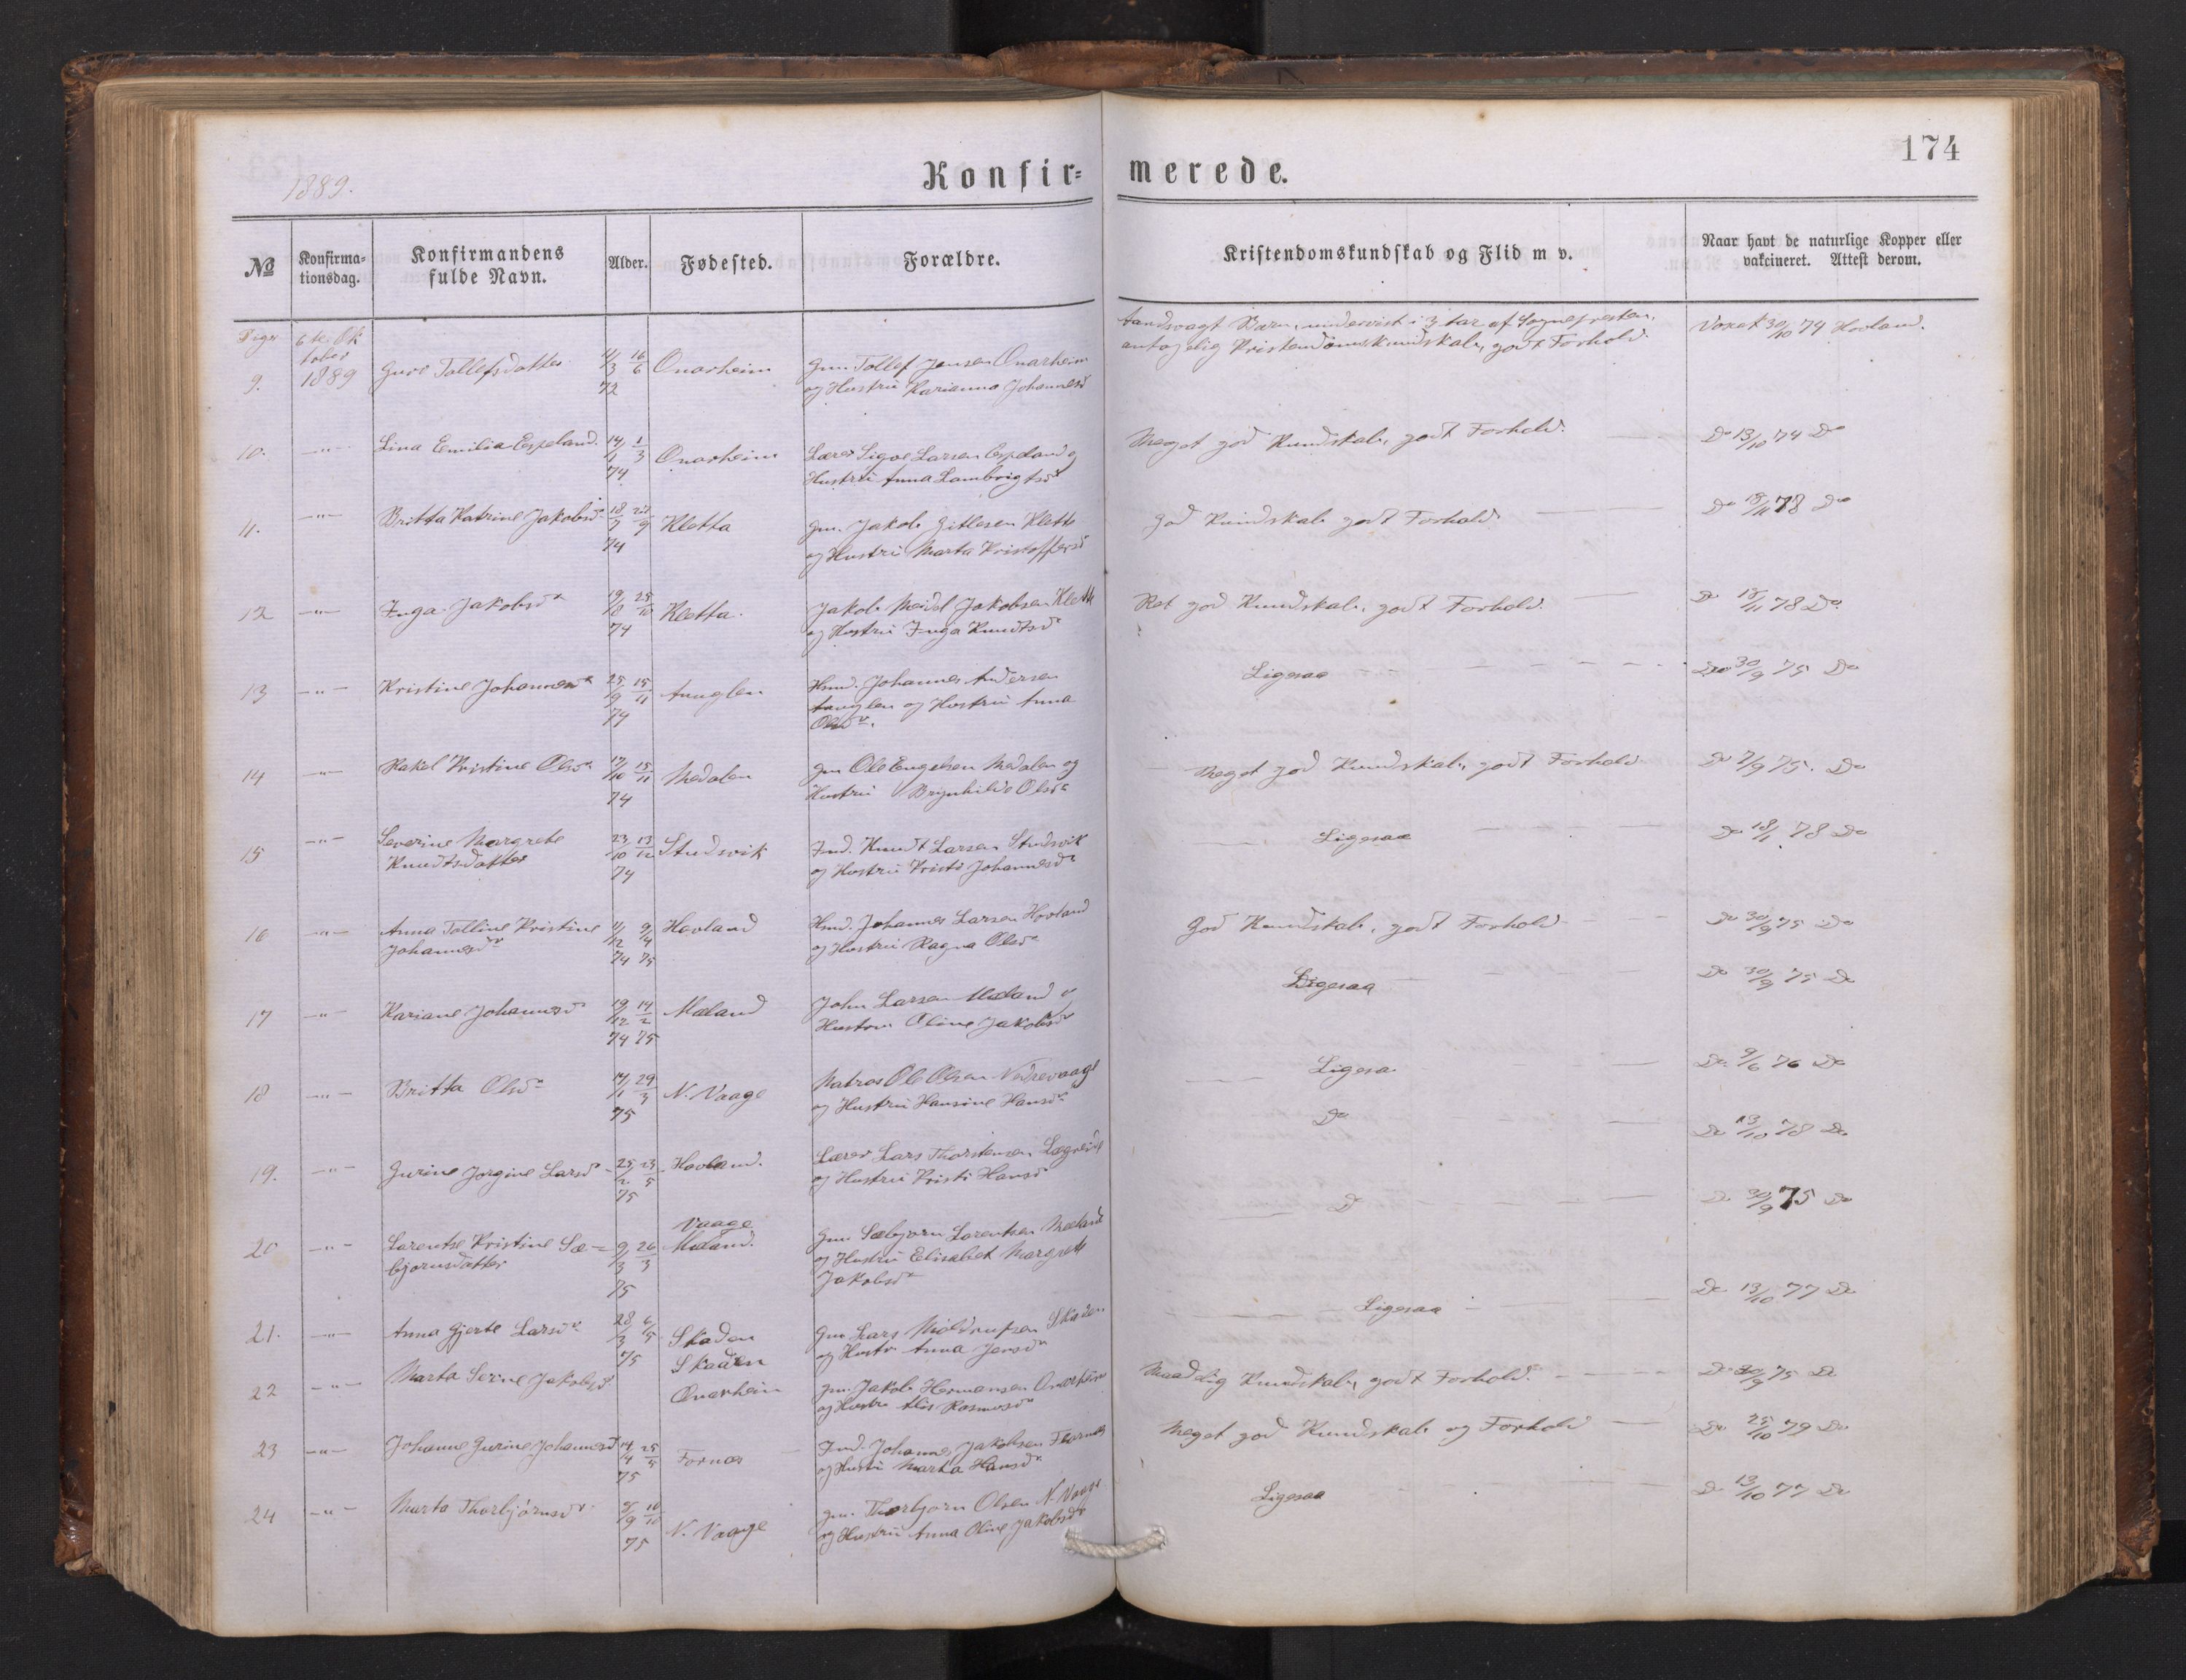 1889.
Konfir-
merede.
174
№
Konfirma-
tionsdag.
Konfirmandens
fulde Navn.
Alder.
Fødested.
Forældre.
Kristendomskundskab og Flid m v.
Naar havt de naturlige Kopper eller
vakcineret. Attest derom.
Piger
6te Ok
tober
1889
9.
Guro Tollefsdatter
11/3 16/6
72
Onarheim
Gm. Tollef Jensen Onarheim
og Hustru Karianna Johannesd
Aandsvagt Barn, undervist i 3 Aar af Sognepresten,
antagelig Kristendomskundskab, godt Forhold.
Vaxet 30/10 74 Hovland.
10. -"- Lina Emilia Espeland. 14/1 1/3
74
Onarheim
Lærer Sigve Larsen Espeland og
Hustru Anna Lambrigtsdr
Meget god Kundskab, godt Forhold.
Do 13/10 74 Do
11. -"- Britta Katrine Jakobsdr 18/7
74
Kletta
Gm. Jakob Gitlesen Kletta
og Hustru Marta Kristoffersd
God Kundskab godt Forhold
Do 18/11 78 Do
12 -"- Inga Jakobsdr 19/8 25/10
74
Kletta.
Jakob Meidel Jakobsen Kletta
og Hustru Inga Knudtsd
Ret god Kundskab, godt Forhold.
Do 18/11 78 Do.
13 -"- Kristine Johannesdr 25/9 15/11
74
Auuglen
Hmd. Johannes Andersen
Auuglen og Hustru Anna
Olsdr.
Ligesaa
Do 30/9 75 Do
14 -"- Rakel Kristine Olsdr 17/10 15/11
74
Medalen
Gm Ole Engelsen Medalen og
Hustru Brynhilde Olsdr
Meget god Kundskab, godt Forhold
Do 7/9 75. Do
15 -"- Severine Margrete
Knudtsdatter
23/10 13/12
74
Studsvik
Ind. Knudt Larsen Studsvik
og Hustru Kristi Johannesdr
Ligesaa
Do 18/11 78 Do
16 -"- Anna Tolline Kristine
Johannesdr
11/12 9/4
74 75
Hovland
Hmd. Johannes Larsen Hovland
og Hustru Ragna Olsdr
God Kundskab, godt Forhold
Do 30/9 75 Do
17 -"- Kariane Johannesd 19/12 14/2
74 75
Mæland
John Larsen Mæland o
Hustru Oline Jakobsdr
Ligesaa
Do 30/9 75 Do
18 -"- Britta Olsdr 14/1 29/3
75
N. Vaage
Matros Ole Olsen Nedrevaage
og Hustru Hansine Hansdr
Ligesa
Do. 9/6 76 Do
19. -"- Gurine Jørgine Larsd 25/2 23/5
75
Hovland.
Lærer Lars Thorstensen Lægreid
og Hustru Kristi Hansd
Do
Do 13/10 78 Do
20 -"- Larentse Kristine Sæ-
bjørnsdatter
9/3 26/3
75
Vaage
Mæland.
Gm Sæbjørn Lorentsen Mæland
og Hustru Elisabet Margrete
Jakobsdr
D
D. 30/9 75 Do
21. -"- Anna Gjerte Larsdr 28/3 6/5
75
Skaden
Gm Lars Moldrupsen Skaden
og Hustr Anna Jensdr
Ligesaa
Do. 13/10 77 Do
22 -"- Marta Serine Jakobsd
Skaden
Onarheim
Gm. Jakob Hermansen Onarheim
og Hustru Alis Rasmusdr
Maadelig Kundskab, godt Forhold.
Do 30/9 75 Do
23 -"- Johanne Gurine Johannesd 14/4 25/5
75
Fornæs
Ind. Johannes Jakobsen Fornæs
og Hustru Marta Hansdr
Meget god Kundskab og Forhold
Do 25/10 79 Do
24 -"- Marta Thorbjørnsdr.
75
N. Vaage
Gm. Thorbjørn Olsen N. Vaage
og Hustru Anna Oline Jakobsdr
Ligesaa
Do 13/10 77 Do